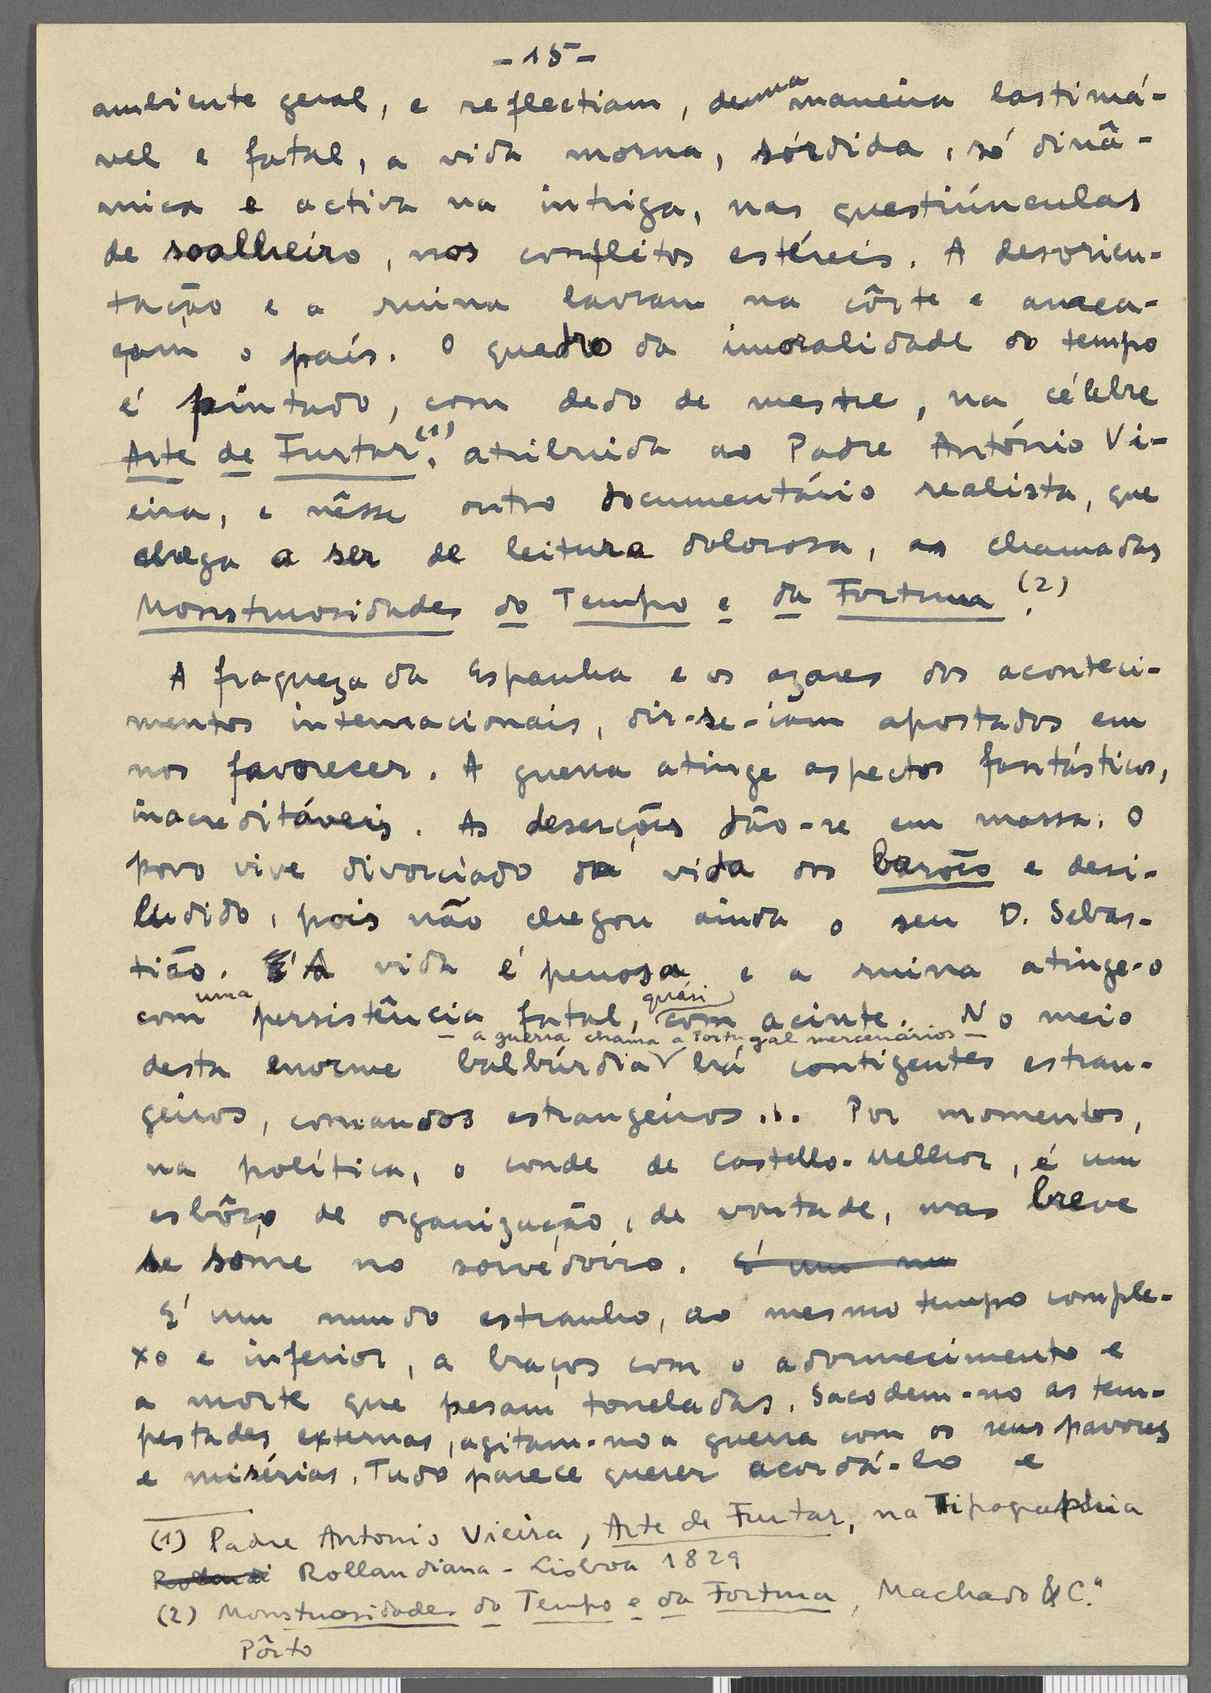 -15-
ambiente geral, e reflectiam, de uma maneira lastimá-
vel e fatal, a vida morna, sórdida, só dinâ-
mica e activa na intriga, nas questiúnculas
de soalheiro, nos conflitos estéreis. A desorien-
tação e a ruina lavram na côrte e amea-
çam o país. O quadro da imoralidade do tempo
é pintado, com dedo de mestre, na célebre
Arte de Furtar(1), atribuida ao Padre António Vi-
eira, e nêsse outro documentário realista, que
chega a ser de leitura dolorosa, as chamadas
Monstruosidades do Tempo e da Fortuna (2).
A fraqueza da Espanha e os azares dos aconteci-
mentos internacionais, dir-se-iam apostados em
nos favorecer. A guerra atinge aspectos fantásticos,
inacreditáveis. As deserções dão-se em massa. O
povo vive divorciado da vida dos barões e desi-
ludido, pois não chegou ainda o seu D. Sebas-
tião. A vida é penosa e a ruina atinge-o
com uma persistência fatal, quási com acinte. No meio
desta enorme balbúrdia - a guerra chama a Portugal mercenários - há contigentes estran-
geiros, comandos estrangeiros... Por momentos,
na política, o conde de Castello-Melhor, é um
esbôço de organização, de vontade, mas breve
se some no sorvedoiro. É um mu
É um mundo estranho, ao mesmo tempo comple-
xo e inferior, a braços com o adormecimento e
a morte que pesam toneladas. Sacodem-no as tem-
pestades externas, agitam-no a guerra com os seus pavores
e misérias. Tudo parece querer acordá-lo e
(1) Padre Antonio Vieira, Arte de Furtar, na Tipographia
Rollandi Rollandiana - Lisboa 1829
(2) Monstruosidades do Tempo e da Fortuna, Machado & C.ª
Pôrto